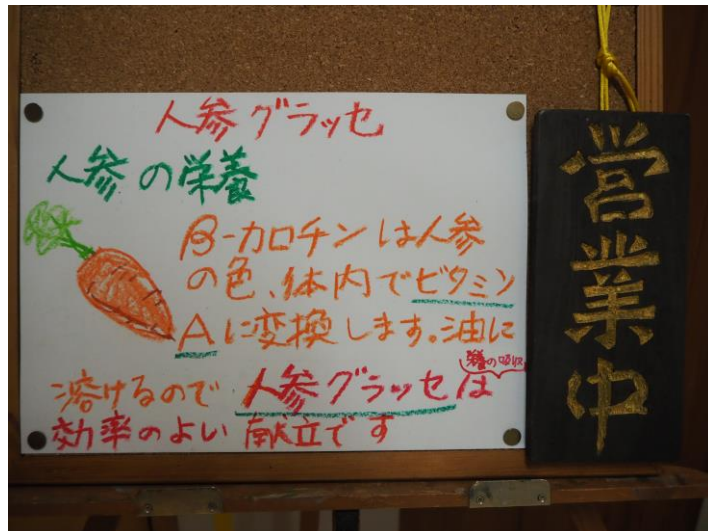 人参グラッセ
人参の栄養
β-カロチンは人参
の色、体内でビタミン
Aに変換します。油に
溶けるので人参グラッセは
栄養の吸収
効率のよい献立です
営業中